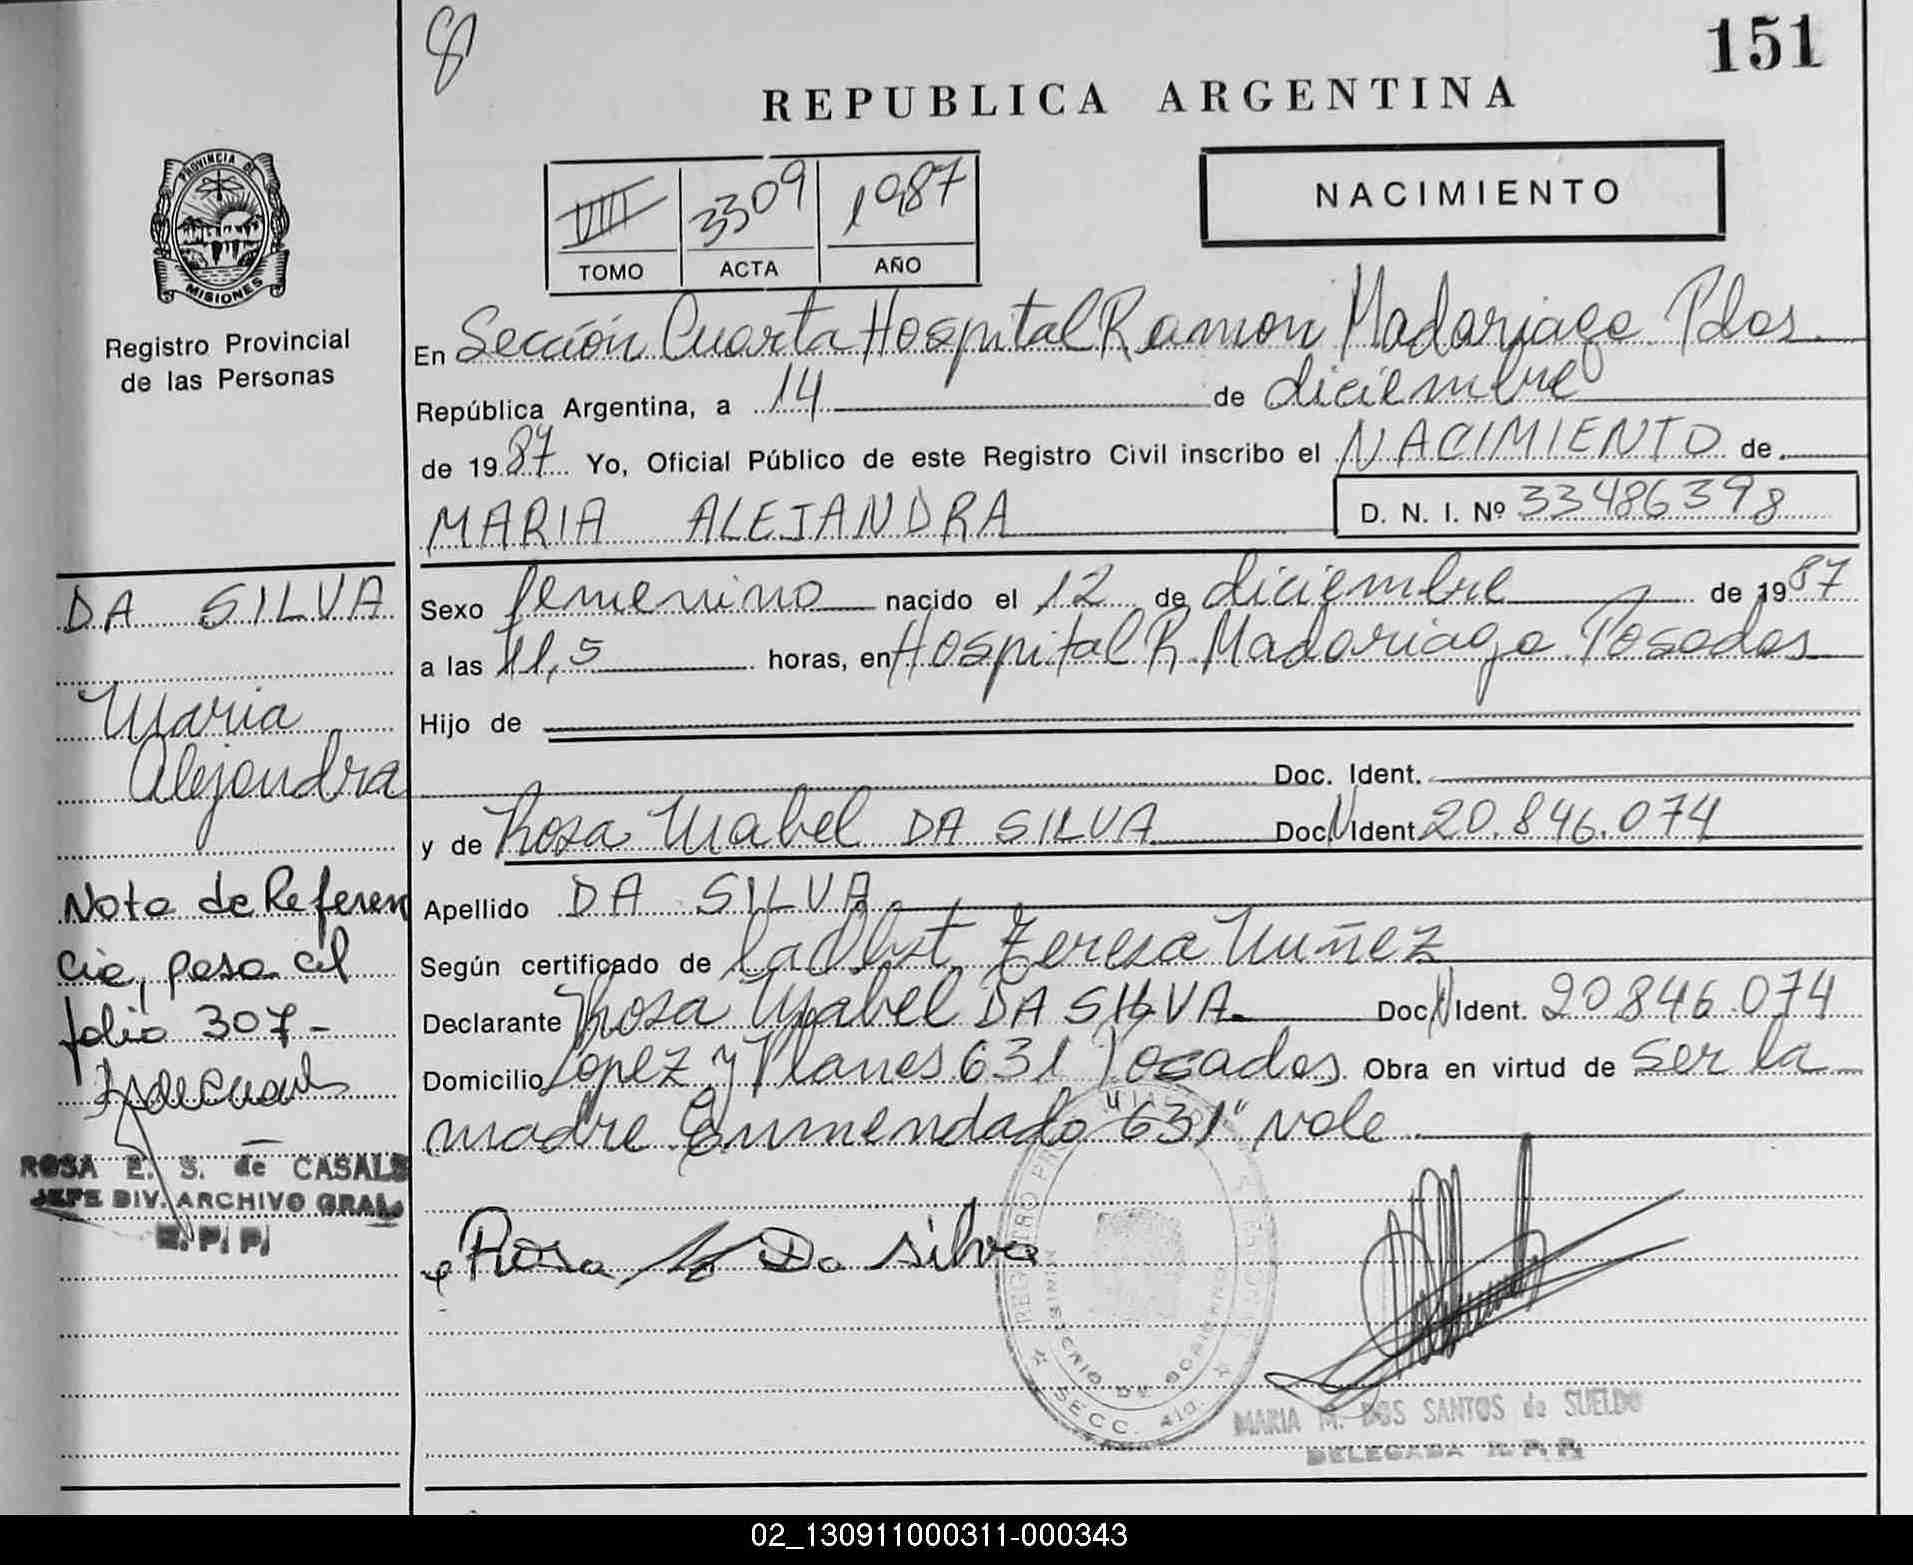 8
151
REPUBLICA ARGENTINA
PROVINCIA DE
MISIONES
Registro Provincial
de las Personas
VIII 3309 1987
TOMO ACTA AÑO
NACIMIENTO
En Sección Cuarta Hospital Ramon Madariaga Pdas.
República Argentina, a 14 de diciembre
de 1987 Yo, Oficial Público de este Registro Civil inscribo el NACIMIENTO de
MARIA ALEJANDRA D. N. I. Nº 33486398
Sexo femenino nacido el 12 de diciembre de 1987
a las 11,5 horas, en Hospital R. Madariaga Posadas
Hijo de
Doc. Ident.
y de Rosa Mabel DA SILVA Doc N Ident 20.846.074
Apellido DA SILVA
Según certificado de la Obst. Teresa Nuñez
Declarante Rosa Mabel DA SILVA Doc N Ident. 20846.074
Domicilio López y Planes 631 Posadas. Obra en virtud de ser la
madre Enmendado "631" vale
Rosa M Da silva
SECC. 4ta.
MINISTERIO DE GOBIERNO
MARIA M. DOS SANTOS de SUELDO
DELEGADA R. P. P.
DA SILVA
Maria
Alejandra
Nota de Referen
cia, pasa al
folio 307-
ROSA E. S. de CASALS
JEFE DIV. ARCHIVO GRAL.
R. P. P.
02_130911000311-000343